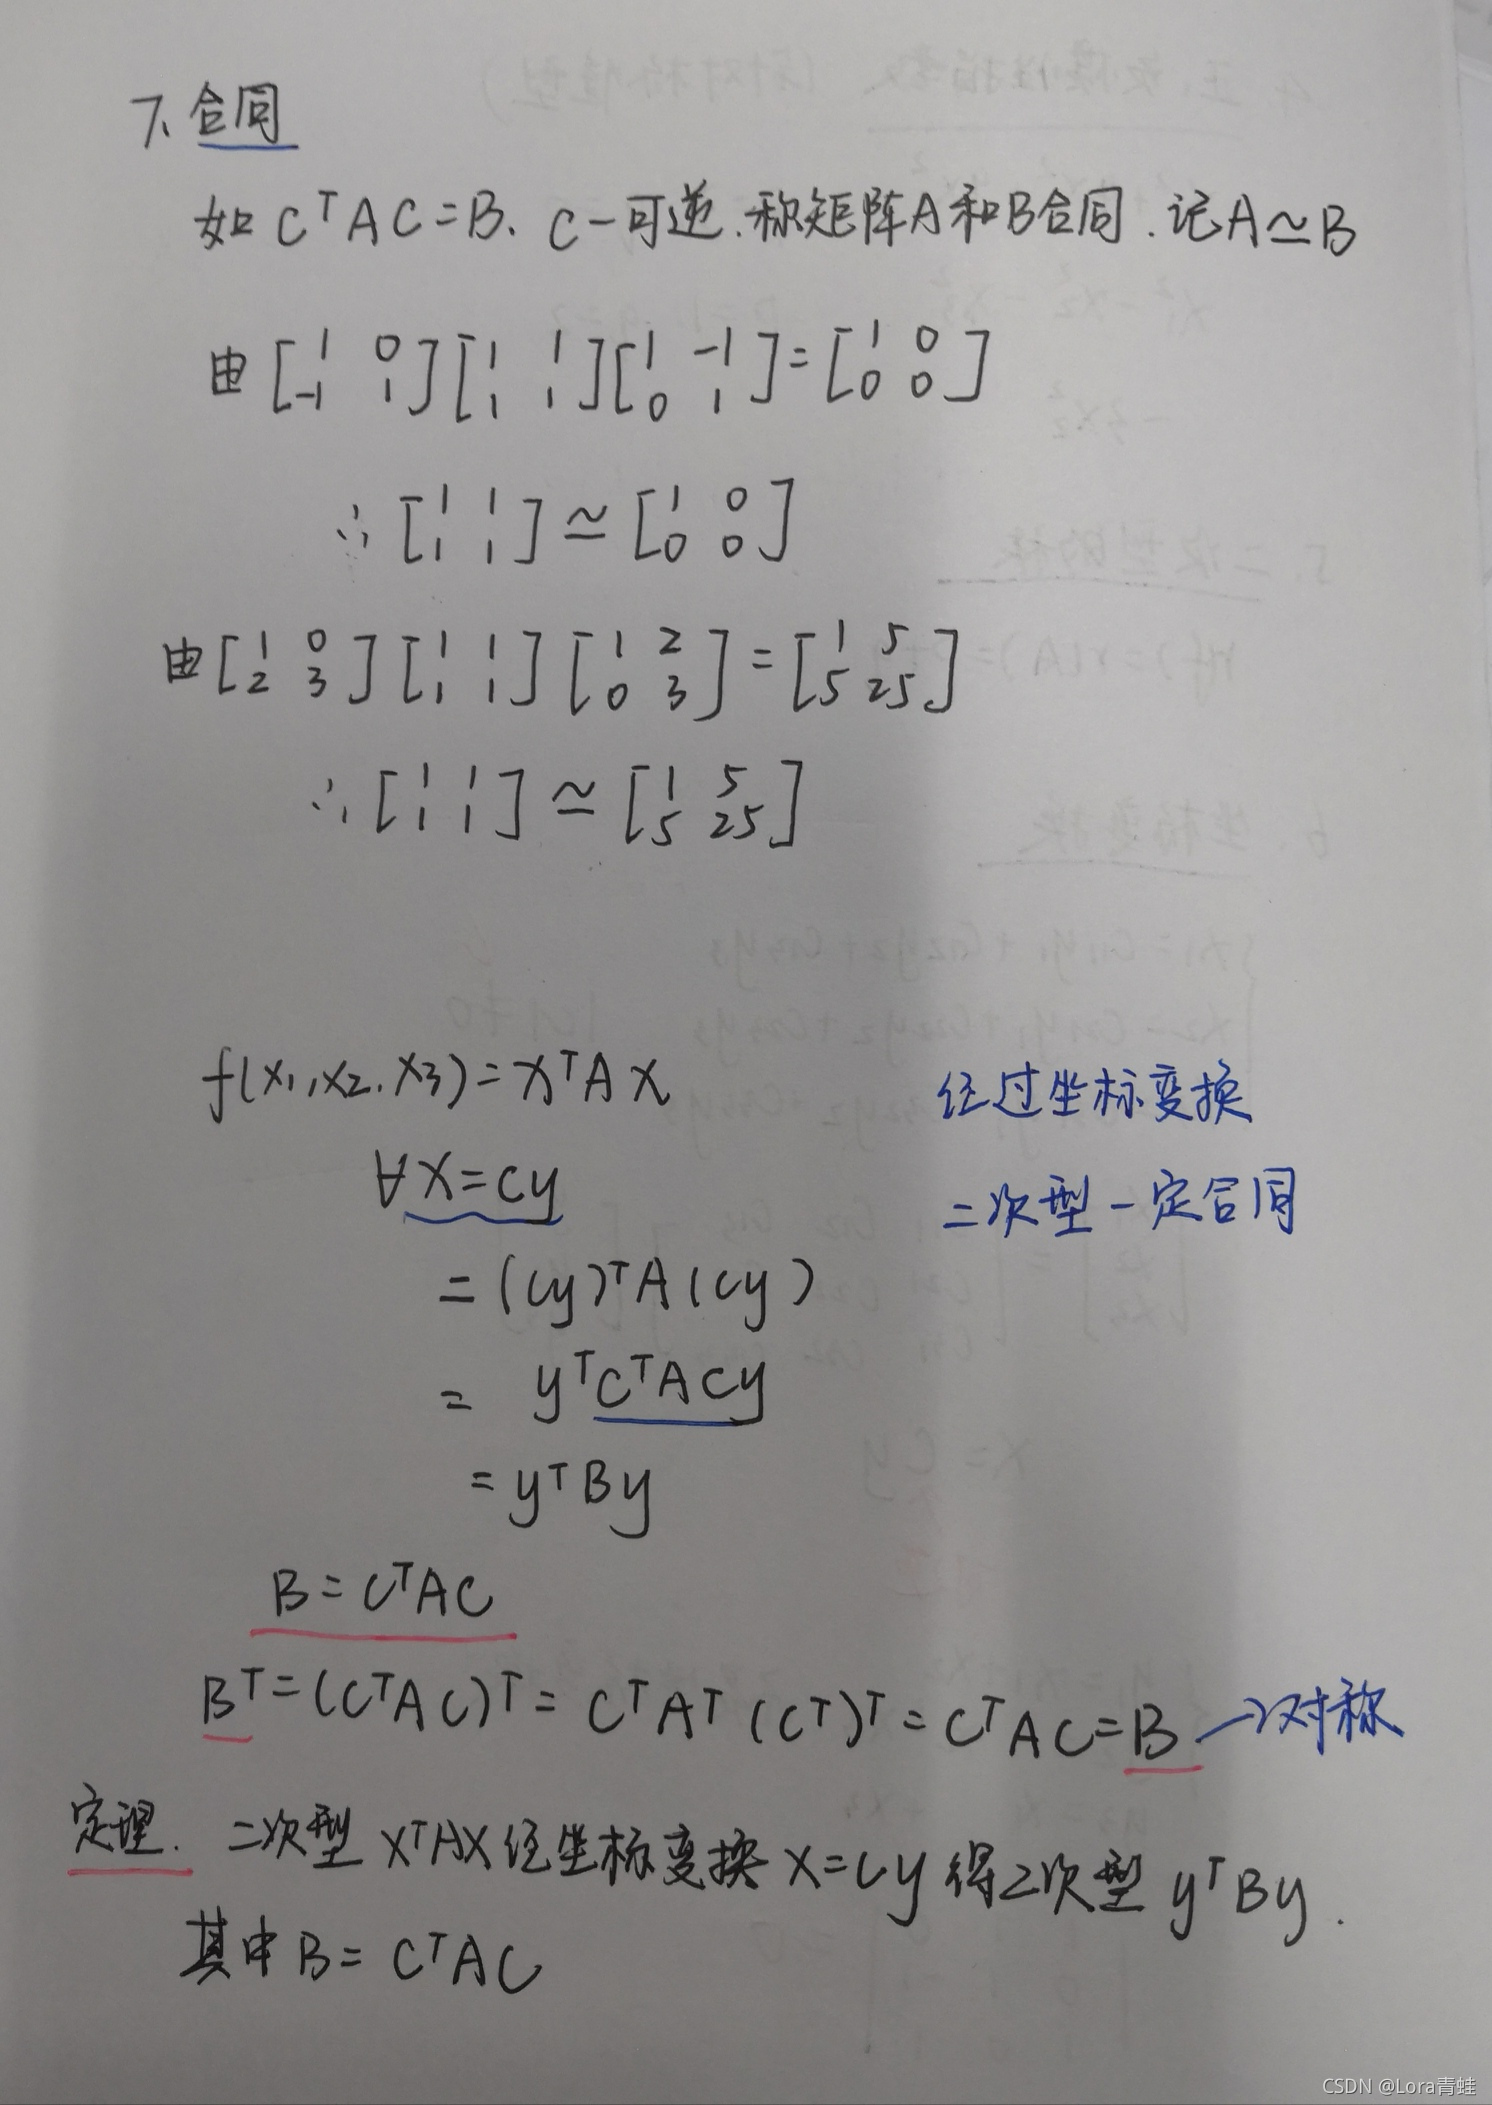 7、合同
如 CᵀAC=B、C-可逆.称矩阵A和B合同.记A≃B
由 [1 0; -1 1][1 1; 1 1][1 -1; 0 1]=[1 0; 0 0]
∴ [1 1; 1 1] ≃ [1 0; 0 0]
由 [1 0; 2 3][1 1; 1 1][1 2; 0 3]=[1 5; 5 25]
∴ [1 1; 1 1] ≃ [1 5; 5 25]
f(x₁,x₂,x₃)=xᵀAx
经过坐标变换
∀x=cy
二次型一定合同
=(cy)ᵀA(cy)
= yᵀCᵀACy
=yᵀBy
B=CᵀAC
Bᵀ=(CᵀAC)ᵀ= CᵀAᵀ(Cᵀ)ᵀ=CᵀAC=B →对称
定理. 二次型 xᵀAx经坐标变换x=cy得二次型 yᵀBy.
其中B= CᵀAC
CSDN @Lora青蛙